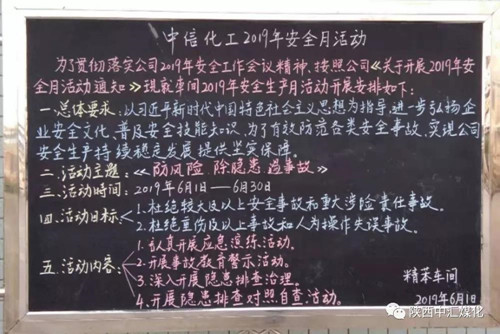 中信化工2019年安全月活动
为了贯彻落实公司2019年安全工作会议精神、按照公司《关于开展2019年安
全月活动通知》现就车间2019年安全生产月活动开展安排如下：
一.总体要求：以习近平新时代中国特色社会主义思想为指导,进一步弘扬企
业安全文化、普及安全技能知识、为了有效防范各类安全事故、实现公司
安全生产持续稳定发展提供坚实保障。
二.活动主题：《防风险 除隐患 遏事故》
三.活动时间：2019年6月1日——6月30日
四.活动目标
1.杜绝较大及以上安全事故和重大涉险责任事故。
2.杜绝重伤及以上事故和人为操作失误事故。
五.活动内容：
1.认真开展应急演练活动。
2.开展事故教育警示活动。
3.深入开展隐患排查治理。
4.开展隐患排查对照自查活动。
精苯车间
2019年6月1日
陕西中汇煤化